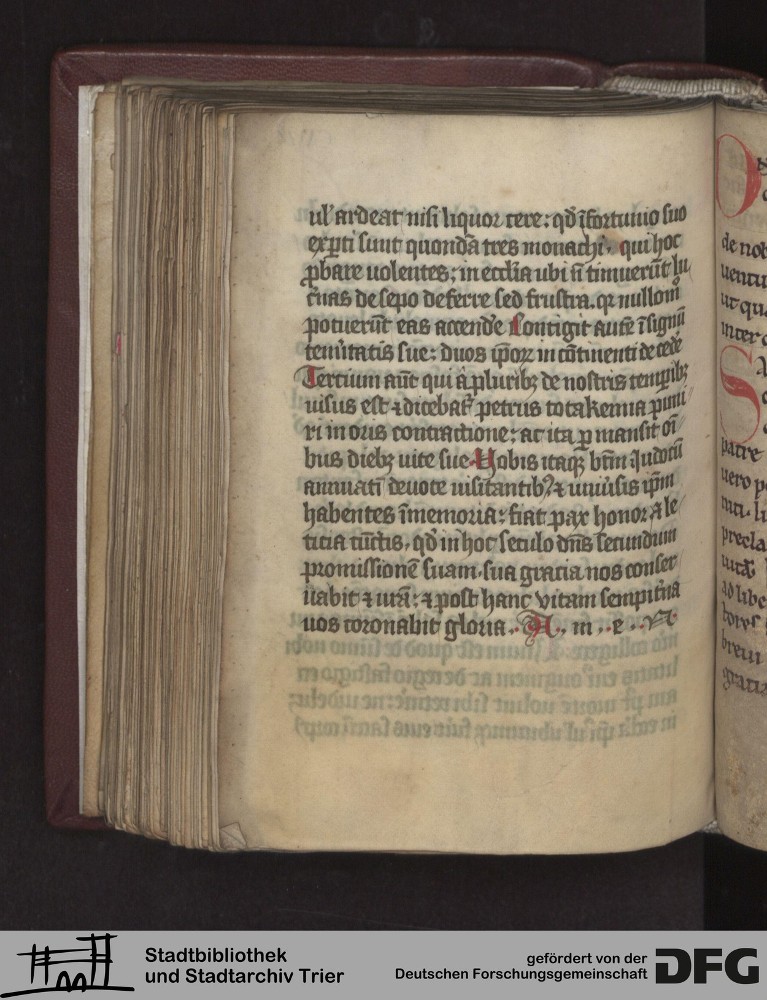 ul' ardeat nisi liquor cere: qd̄ īfortunio suo
exp̄ti sunt quondā tres monachi. qui hoc
ꝓbare uolentes: in eccl̄ia ubi sī timuerūt lu
c̄nas de sepo deferre sed frustra. qr nullom̊
potuerūt eas accend'e Contigit aut̄e ī signū
tem̓itatis sue: duos ip̄oꝝ in cōtinenti decede
Tertium aūt qui a pluribꝫ de nostris temꝑibꝫ
uisus est ⁊ dicebat᷑ petrus totakenna puni
ri in oris contractione: ac ita ꝑmansit oī
bus diebꝫ uite sue Vobis itaqꝫ btm̄ iudocū
annuatī deuote uisitantibꝫ ⁊ ip̄m
habentes ī memoria: fiat pax honor ⁊ le
ticia cūctis. qd̓ in hoc seculo dn̄s secundum
promissionē suam. sua gracia nos conser
uabit ⁊ urā: ⁊ post hanc vitam sempit̓na
uos coronabit gloria. A. m. e. N.
de nob
uentu
ut qua
inter c
patre
uero p
mi. li
precla
ad libe
breui
gratia
Stadtbibliothek
und Stadtarchiv Trier
gefördert von der
Deutschen Forschungsgemeinschaft
DFG